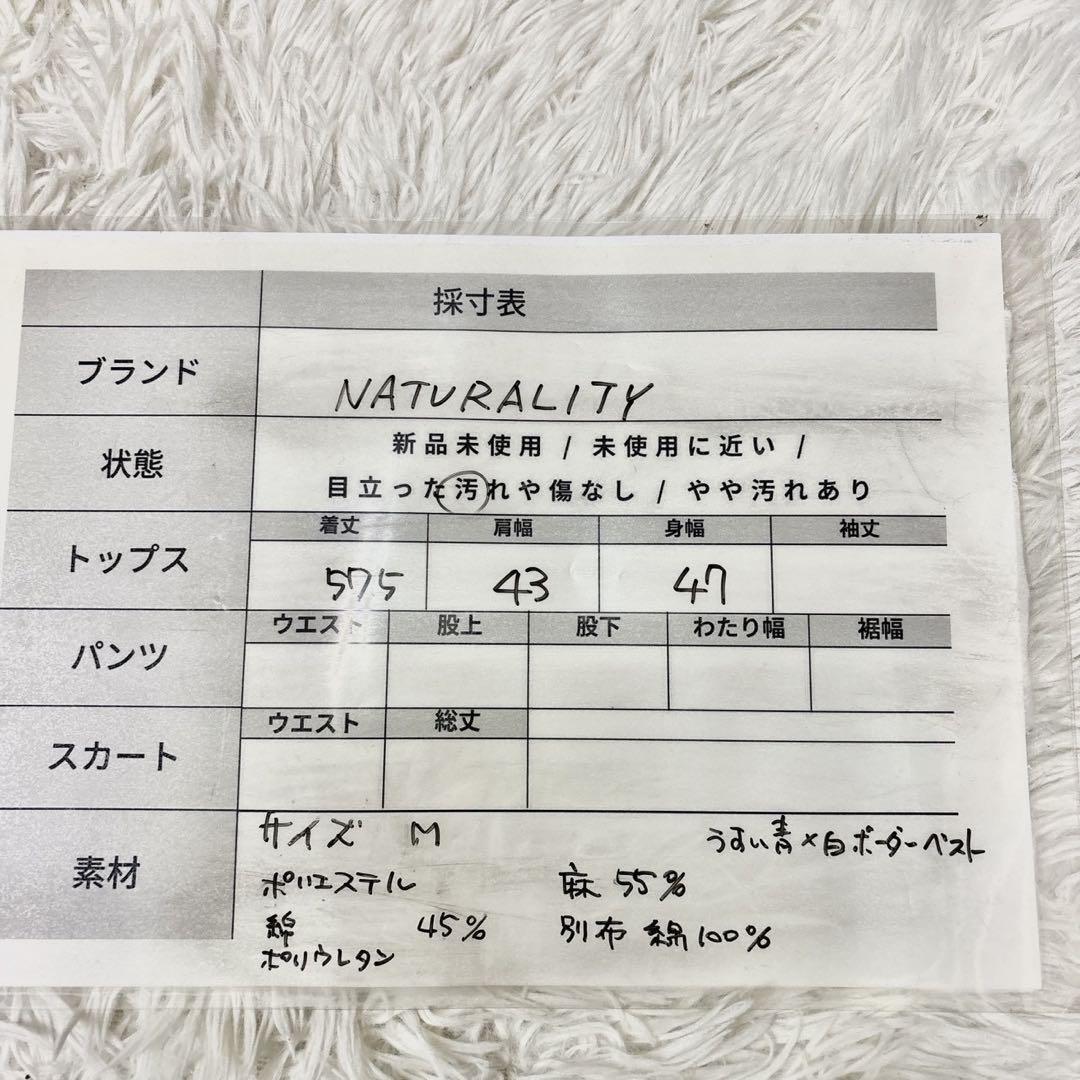 採寸表
ブランド NATURALITY
状態 新品未使用 / 未使用に近い /
目立った汚れや傷なし / やや汚れあり
トップス 着丈 肩幅 身幅 袖丈
575 43 47
パンツ ウエスト 股上 股下 わたり幅 裾幅
スカート ウエスト 総丈
素材 サイズ M うすい青×白ボーダーベスト
ポリエステル 麻 55%
綿 45% 別布 綿100%
ポリウレタン